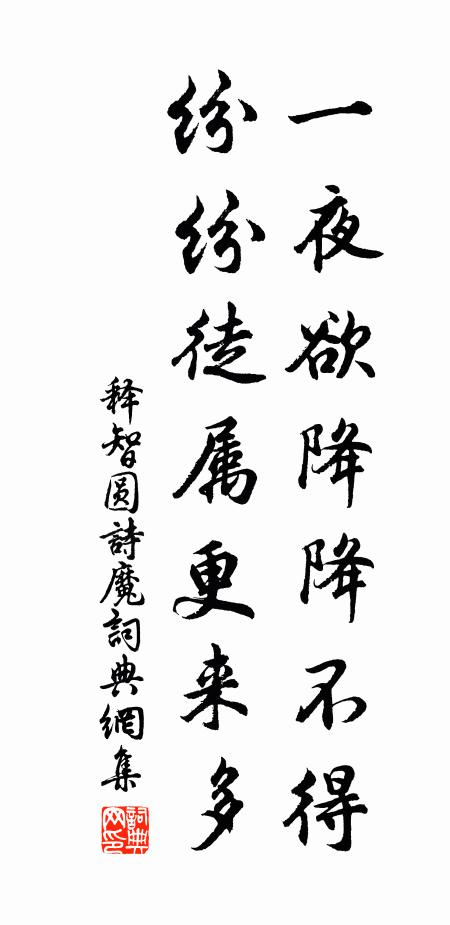 一夜欲降降不得
纷纷徒属更来多
释智圆詩魔詞典網集
詞典网印